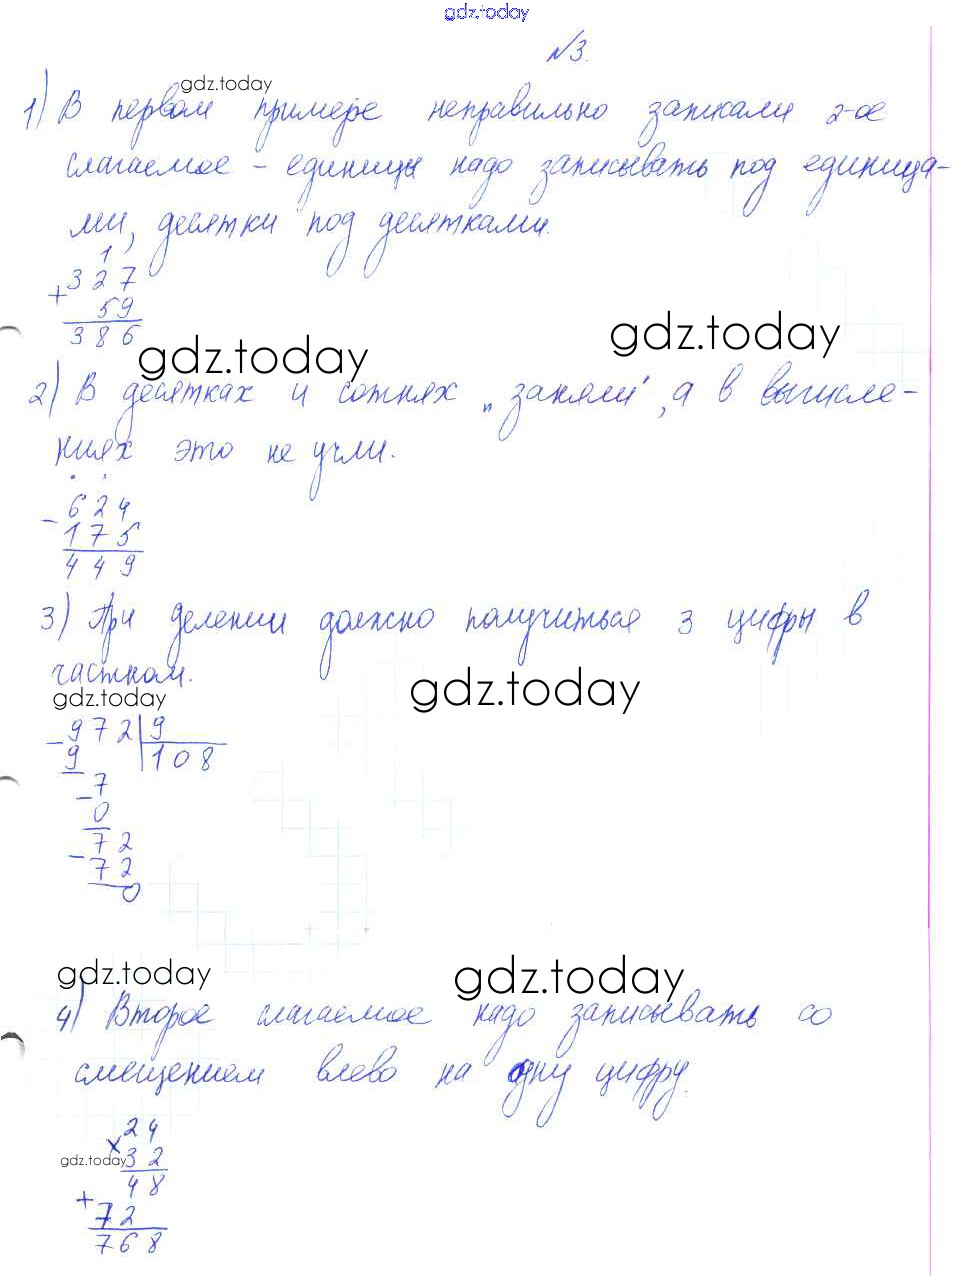 gdz.today
№3.
gdz.today
1) В первом примере неправильно записали 2-ое
слагаемое - единицы надо записывать под единица-
ми, десятки под десятками.
1
+ 327
59
386
gdz.today
gdz.today
2) В десятках и сотнях „заняли", а в вычисле-
ниях это не учли.
. .
- 624
175
449
3) При делении должно получиться 3 цифры в
частном.
gdz.today
gdz.today
- 972 | 9
9 | 108
- 7
0
- 72
72
0
gdz.today
gdz.today
4) Второе слагаемое надо записывать со
смещением влево на одну цифру.
24
x 32
gdz.today
48
+ 72
768